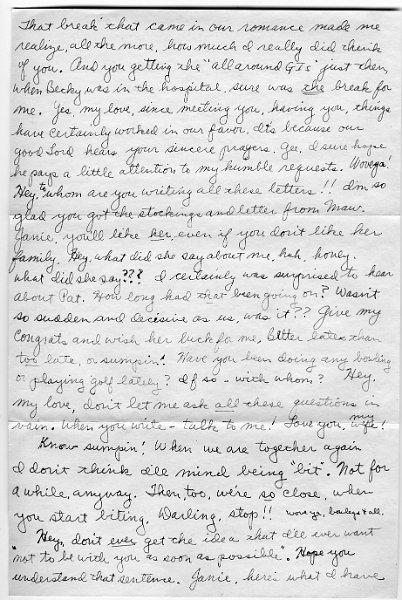 That break that came in our romance made me
realize, all the more, how much I really did think
of you. And you getting the "all around G.I.s" just then,
when Becky was in the hospital, sure was the break for
me. Yes, my love, since meeting you, having you, things
have certainly worked in our favor. It's because our
good Lord hears your sincere prayers. Gee, I sure hope
he pays a little attention to my humble requests.
Hey, to whom are you writing all these letters!! I'm so
glad you got the stockings and letter from Maw.
Janie, you'll like her even if you don't like her
family. Hey, what did she say about me, huh, honey.
What did she say??? I certainly was surprised to hear
about Pat. How long had that been going on? Wasn't
so sudden and decisive as us, was it?? Give my
congrats and wish her luck fo me, better late than
too late, or sumpin! Have you been doing any bowling
or playing golf lately? If so - with whom? Hey,
my love, don't let me ask all these questions in
vain. When you write - talk to me! Love you, my wife!
Know sumpin! When we are together again
I don't think I'll mind being "bit". Not for
a while, anyway. Then, too, we're so close, when
you start biting. Darling, stop!!
Hey, don't ever get the idea that I'll ever want
"not to be with you as soon as possible". Hope you
understand that sentence. Janie, here's what I have